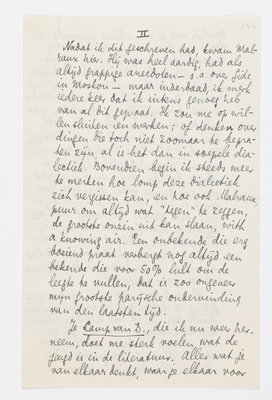 II
Nadat ik dit geschreven had, kwam Mal-
raux hier. Hij was heel aardig, had als
altijd grappige anecdoten – o.a. over Gide
in Moskou – maar inderdaad, ik merk
iedere keer dat ik intens genoeg heb
van al dit gepraat. Ik zou me op wil-
len sluiten en werken; of denken over
dingen die toch niet zoomaar te bepra-
ten zijn, al is het dan in soepele dia-
lectiek. Bovendien begin ik steeds meer
te merken hoe lomp deze dialectiek
zich vergissen kan, en hoe ook Malraux,
puur om altijd wat "tegen" te zeggen,
de grootste onzin uit kan slaan, with
a knowing air. Een onbekende die erg
boeiend praat verbergt nog altijd een
bekende die voor 50% lult om de
leegte te vullen, dat is zoo ongeveer
mijn grootste parijsche ondervinding
van den laatsten tijd.
Je Camp van D., die ik nu weer her-
neem, doet me sterk voelen, wat de
jeugd is in de literatuur. Alles wat je
van elkaar denkt, waar je elkaar voor